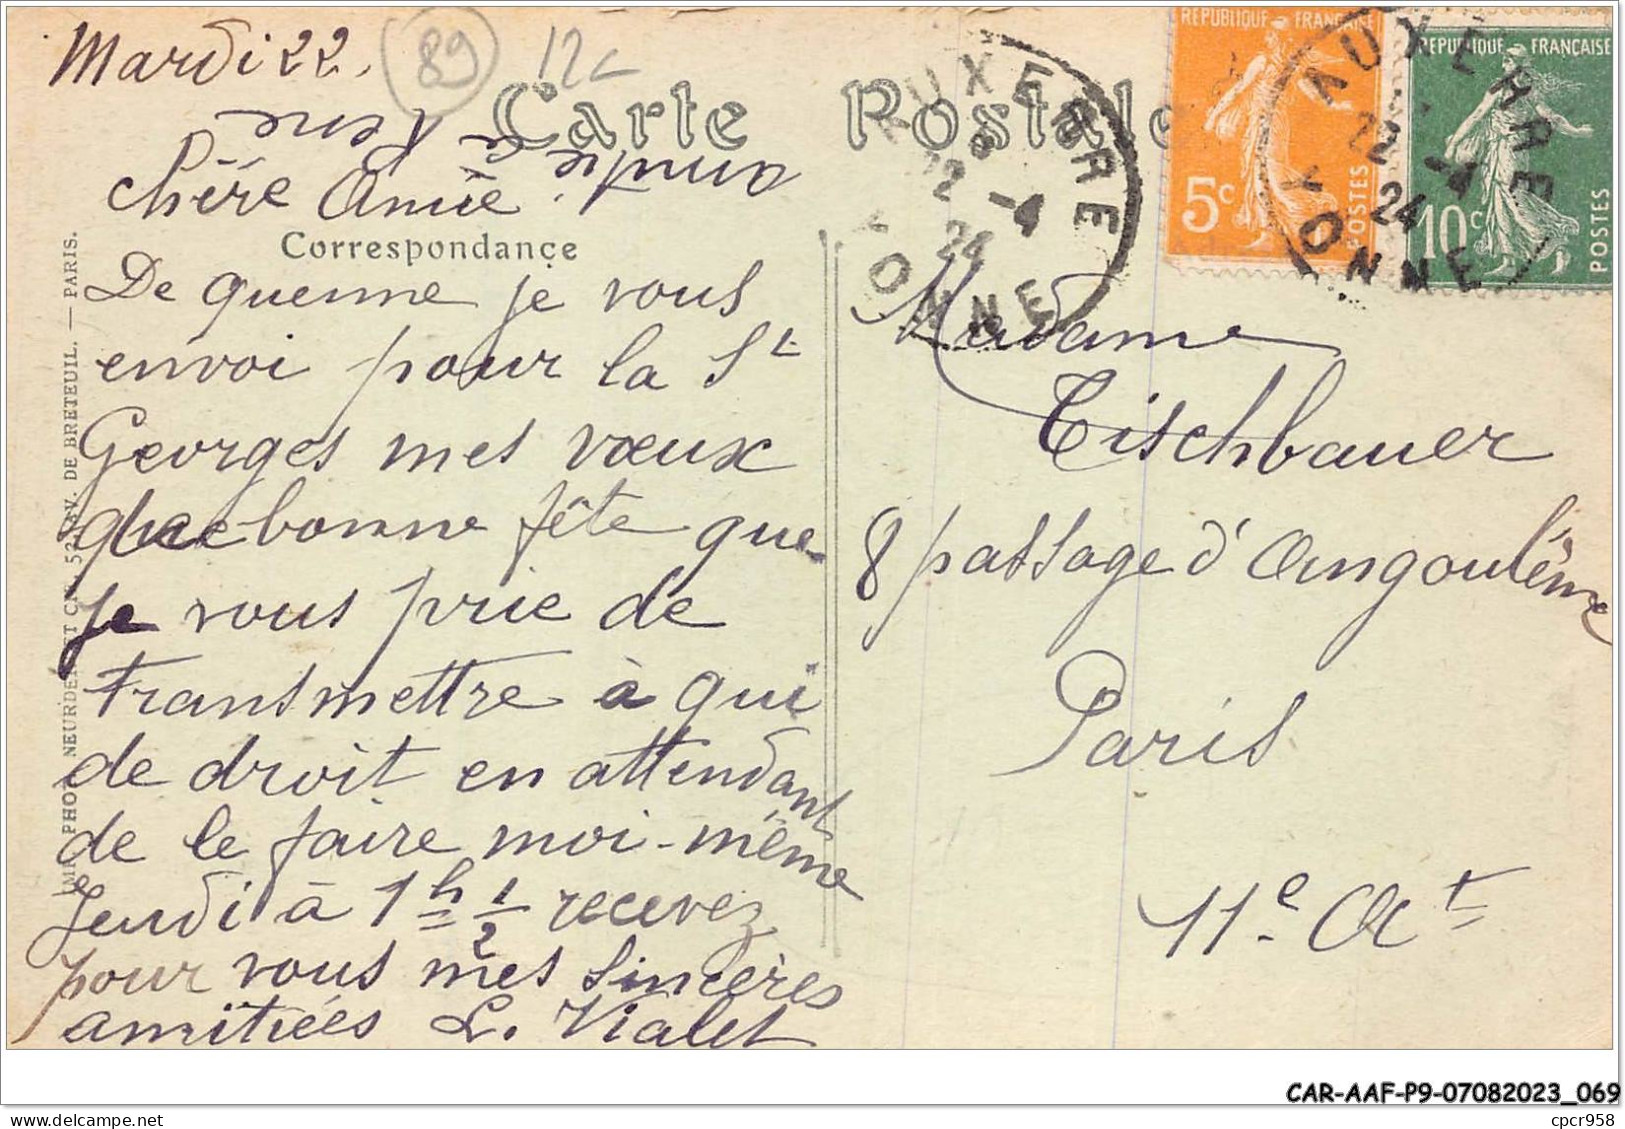 Mardi 22.
89
12c
Carte Postale
amitié à René
Chère Amie
Correspondance
De guenne je vous
envoi pour la St
Georges mes vœux
de bonne fête que
je vous prie de
transmettre à qui
de droit en attendant
de le faire moi-même
Jeudi à 1h 1/2 recevez
pour vous mes sincères
amitiées L. Vialet
IMP. PHOT. NEURDEIN ET CIE. 52, AV. DE BRETEUIL. — PARIS.
AUXERRE
22 -4
24
YONNE
REPUBLIQUE FRANÇAISE
5c
POSTES
REPUBLIQUE FRANÇAISE
10c
POSTES
AUXERRE
22 -4
24
YONNE
Madame
Tischbauer
8 passage d'Angoulême
Paris
11e At
CAR-AAF-P9-07082023_069
www.delcampe.net
cpcr958